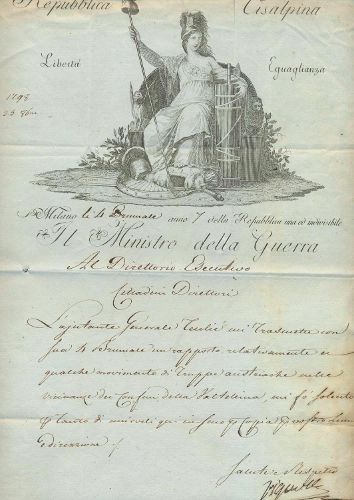 Repubblica Cisalpina
Libertà Eguaglianza
1798
25 8bre
Milano li 4 Brumale anno 7 della Repubblica una ed indivisibile
Il Ministro della Guerra
Al Direttorio Esecutivo
Cittadini Direttori
L'ajutante Generale mi trasmette con
sua 4 Brumale un rapporto relativamente a
qualche movimento di truppe austriache nelle
vicinanze dei confini della Valtellina, mi fò
di unirvelo qui in Copia per vostro lume
e direzione
Salute e Rispetto